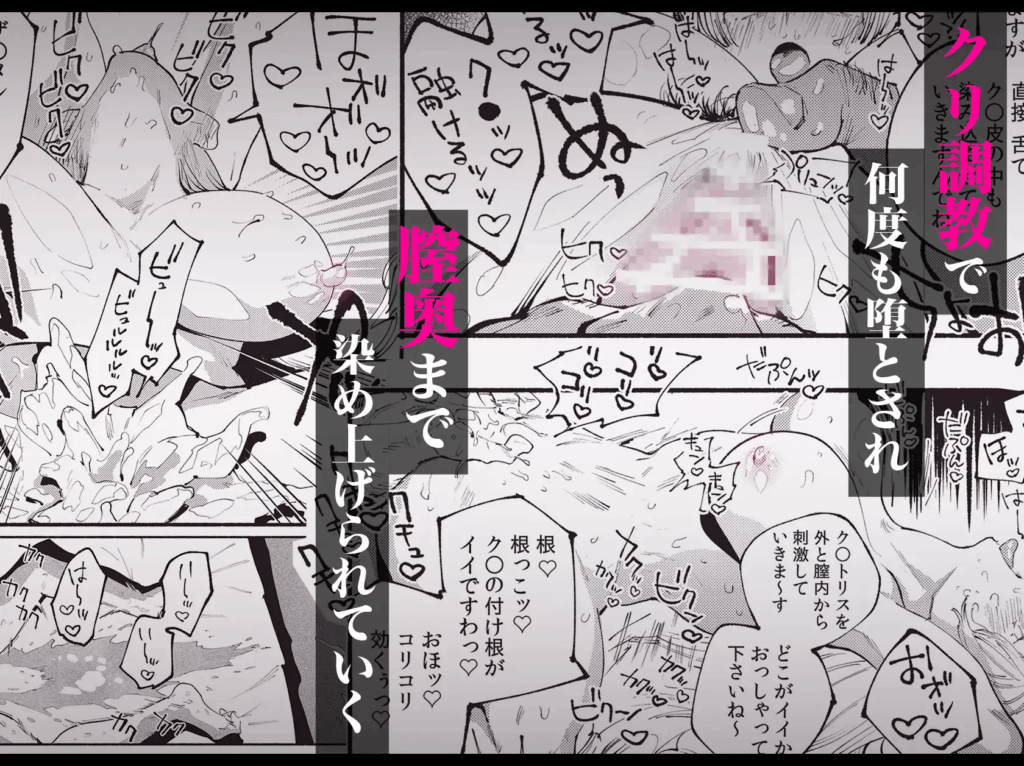 クリ調教で
何度も堕とされ
膣奥まで
染め上げられていく
直接 舌で
ク〇皮の中も
いきますんでね
はーっ♡
プリュッ♡
ビクッ♡
ビクッ♡
ク●
融ける♡
ぬっ
ほぉぉ♡
ビクッ♡
ビクッ♡
ビュ——ッ♡
ビュルルルルッ♡
だぷんッ♡
だぷんッ♡
コリッ♡
コリッ♡
ク〇トリスを
外と膣内から
刺激して
いきま〜す
どこがイイか
おっしゃって
下さいね〜
おぉッ♡
根♡
根っこッ♡
ク〇の付け根が
イイですわっ♡
おほッ♡
コリコリ
効くぅっ♡
クチュ♡
ビクーン♡
カクカク
カクカク
はーッ♡